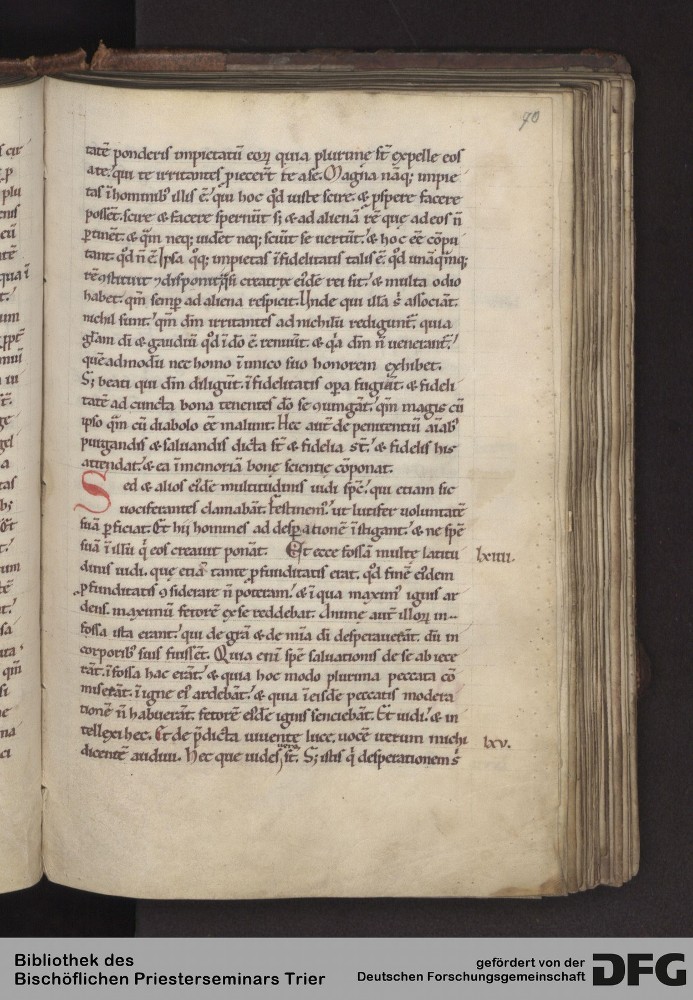 70
tatē ponderis impietatū eorͥ quia plurimę st̄ expelle eos
a te. qui te irritantes piecerт te a se. Magna nāq; impie
tas ī hominib; illis ē. qui hoc qd̄ iuste scire. & pspere facere
possēt. scire & facere spernūt s; & ad alienā rē que ad eos n̄
ptinēt. & qm̄ neq; uidēt neq; sciūt se uertūt. & hoc eē cōpu
tant. qd̄ n̄ ē Ipsa q̊q; impietas īfidelitatis talis ē. qd̄ unāqm̄q;
habet. qm̄ semp ad aliena respicit. Unde qui illā s̄ associāt.
nichil sunt. qm̄ dm̄ irritantes ad nichilū rediguntͬ. quia
glam dī & gaudiū qd̄ ī dō ē rennuūt. & qa dm̄ n̄ uenerantͬ.
quēadmodū nec homo īimico suo honorem exhibet.
S; beati qui dm̄ diligūt. īfidelitatis opa fugiūt. & fideli
tatē ad cuncta bona tenentes dō se ꝯiungāt. qm̄ magis cū
ipso qm̄ cū diabolo eē malunt. Hec autē de penitentiū aīab;
purgandis & saluandis dicta st̄ & fidelia st̄. & fidelis his
attendat. & ea ī memoriā bonę scientię cōponat.
Sed & alios eīdē multitudinis uidi spc̄. qui etiam sic
uociferantes clamabāt. Festinem᷒. ut lucifer uoluntatē
suā pficiat. Et hii homines ad despationē īstigant. & ne spē
suā ī illū q̄ eos creauit ponāt. Et ecce fossā multę latitu lxiiii.
dinis uidi. que etiā tantę pfunditatis erat. qd̄ finē eīdem
pfunditatis ꝯsiderare n̄ poteram. & ī qua maxim᷒ ignis ar
dens. maximū fetorē ex se reddebat. Animę autē illorͥ in
fossa ista erant. qui de gr̄a & de mīa dī desperauerāt. dū in
corporib; suis fuissēt. Quia eni spē saluationis de se abiece
rāt. ī fossa hac erāt. & quia hoc modo plurima peccata cō
miserāt. ī igne ei᷒ ardebāt. & quia ī eisdē peccatis modera
tionē n̄ habuerāt. fetorē eīdē ignis senciebāt. Et uidi. & in
tellexi hec. Et de p̄dicta uiuente luce. uocē iterum michi lxv.
dicentē audiui. Hec que uides uera st̄. S; istis q̄ desperationem s̄
Bibliothek des
Bischöflichen Priesterseminars Trier
gefördert von der
Deutschen Forschungsgemeinschaft
DFG